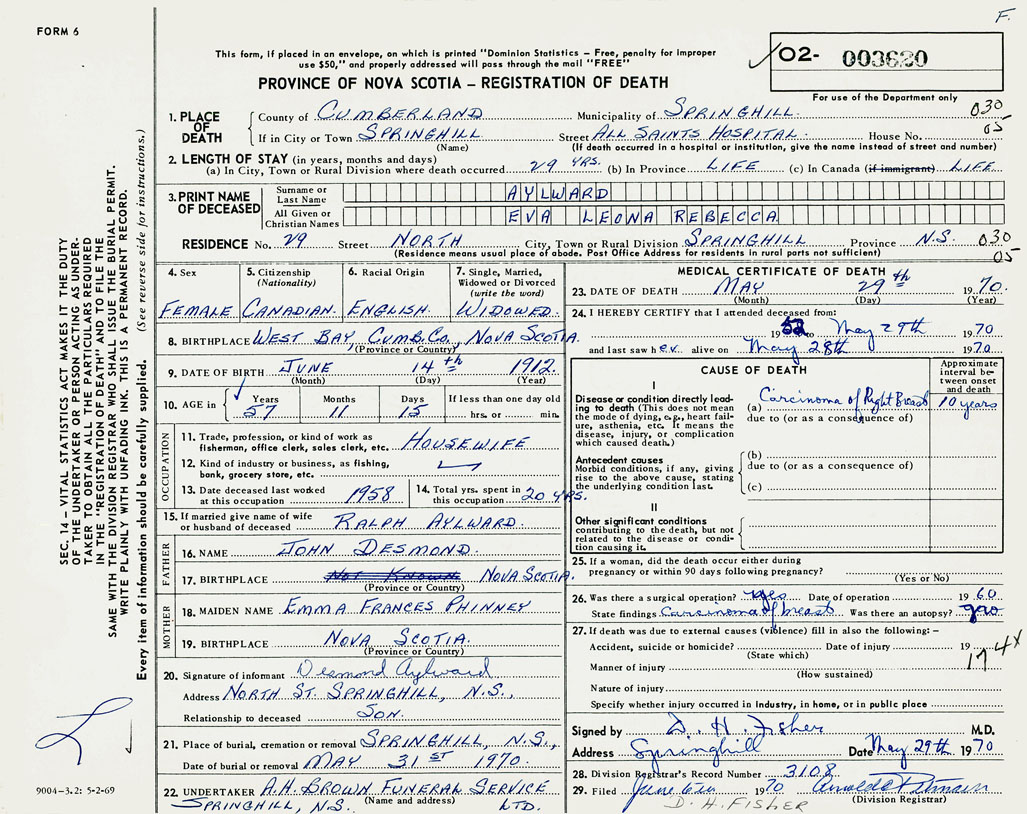 F.
FORM 6
This form, if placed in an envelope, on which is printed "Dominion Statistics – Free, penalty for improper
use $50," and properly addressed will pass through the mail "FREE"
PROVINCE OF NOVA SCOTIA – REGISTRATION OF DEATH
O2- 003620
For use of the Department only
1. PLACE OF DEATH
County of CUMBERLAND Municipality of SPRINGHILL. 030
If in City or Town SPRINGHILL Street ALL SAINTS HOSPITAL. House No. 05
(Name) (If death occurred in a hospital or institution, give the name instead of street and number)
2. LENGTH OF STAY (in years, months and days)
(a) In City, Town or Rural Division where death occurred 29 YRS. (b) In Province LIFE (c) In Canada (if immigrant) LIFE
3. PRINT NAME OF DECEASED
Surname or Last Name AYLWARD
All Given or Christian Names EVA LEONA REBECCA
RESIDENCE No. 29 Street NORTH City, Town or Rural Division SPRINGHILL Province N.S. 030
(Residence means usual place of abode. Post Office Address for residents in rural parts not sufficient) 05
4. Sex
FEMALE
5. Citizenship
(Nationality)
CANADIAN.
6. Racial Origin
ENGLISH.
7. Single, Married,
Widowed or Divorced
(write the word)
WIDOWED.
8. BIRTHPLACE WEST BAY, CUMB. CO., NOVA SCOTIA.
(Province or Country)
9. DATE OF BIRTH JUNE 14th 1912.
(Month) (Day) (Year)
10. AGE in
Years 57
Months 11
Days 15
If less than one day
hrs. or min.
OCCUPATION
11. Trade, profession, or kind of work as
fisherman, office clerk, sales clerk, etc. HOUSEWIFE
12. Kind of industry or business, as fishing,
bank, grocery store, etc.
13. Date deceased last worked
at this occupation 1958
14. Total yrs. spent in
this occupation 20 YRS.
15. If married give name of wife
or husband of deceased RALPH AYLWARD.
FATHER
16. NAME JOHN DESMOND.
17. BIRTHPLACE NOT KNOWN NOVA SCOTIA.
(Province or Country)
MOTHER
18. MAIDEN NAME EMMA FRANCES PHINNEY
19. BIRTHPLACE NOVA SCOTIA.
(Province or Country)
20. Signature of informant Desmond Aylward
Address NORTH ST. SPRINGHILL, N.S.,
Relationship to deceased SON.
21. Place of burial, cremation or removal SPRINGHILL, N.S.,
Date of burial or removal MAY 31ST 1970.
22. UNDERTAKER A.H. BROWN FUNERAL SERVICE
(Name and address)
SPRINGHILL, N.S. LTD.
MEDICAL CERTIFICATE OF DEATH
23. DATE OF DEATH MAY 29th 1970.
(Month) (Day) (Year)
24. I HEREBY CERTIFY that I attended deceased from:
19 to May 29th 1970
and last saw her alive on May 28th 1970
CAUSE OF DEATH
Approximate
interval be-
tween onset
and death
I
Disease or condition directly lead-
ing to death (This does not mean
the mode of dying, e.g., heart fail-
ure, asthenia, etc. It means the
disease, injury, or complication
which caused death.)
(a) Carcinoma of Right Breast 10 years
due to (or as a consequence of)
Antecedent causes
Morbid conditions, if any, giving
rise to the above cause, stating
the underlying condition last.
(b)
due to (or as a consequence of)
(c)
II
Other significant conditions
contributing to the death, but not
related to the disease or condi-
tion causing it.
25. If a woman, did the death occur either during
pregnancy or within 90 days following pregnancy?
(Yes or No)
26. Was there a surgical operation? yes Date of operation 1960
State findings Carcinoma of breast Was there an autopsy? no
27. If death was due to external causes (violence) fill in also the following: –
Accident, suicide or homicide? Date of injury 19
(State which)
174X
Manner of injury
(How sustained)
Nature of injury
Specify whether injury occurred in industry, in home, or in public place
Signed by D. H. Fisher M.D.
Address Springhill Date May 29th 1970
28. Division Registrar's Record Number 3108
29. Filed June 1970
(Division Registrar)
D. H. FISHER
SEC. 14 – VITAL STATISTICS ACT MAKES IT THE DUTY
OF THE UNDERTAKER OR PERSON ACTING AS UNDER-
TAKER TO OBTAIN ALL THE PARTICULARS REQUIRED
IN THE "REGISTRATION OF DEATH" AND TO FILE THE
SAME WITH THE DIVISION REGISTRAR WHO SHALL ISSUE THE BURIAL PERMIT.
WRITE PLAINLY WITH UNFADING INK. THIS IS A PERMANENT RECORD.
Every item of information should be carefully supplied. (See reverse side for instructions.)
9004-3.2: 5-2-69